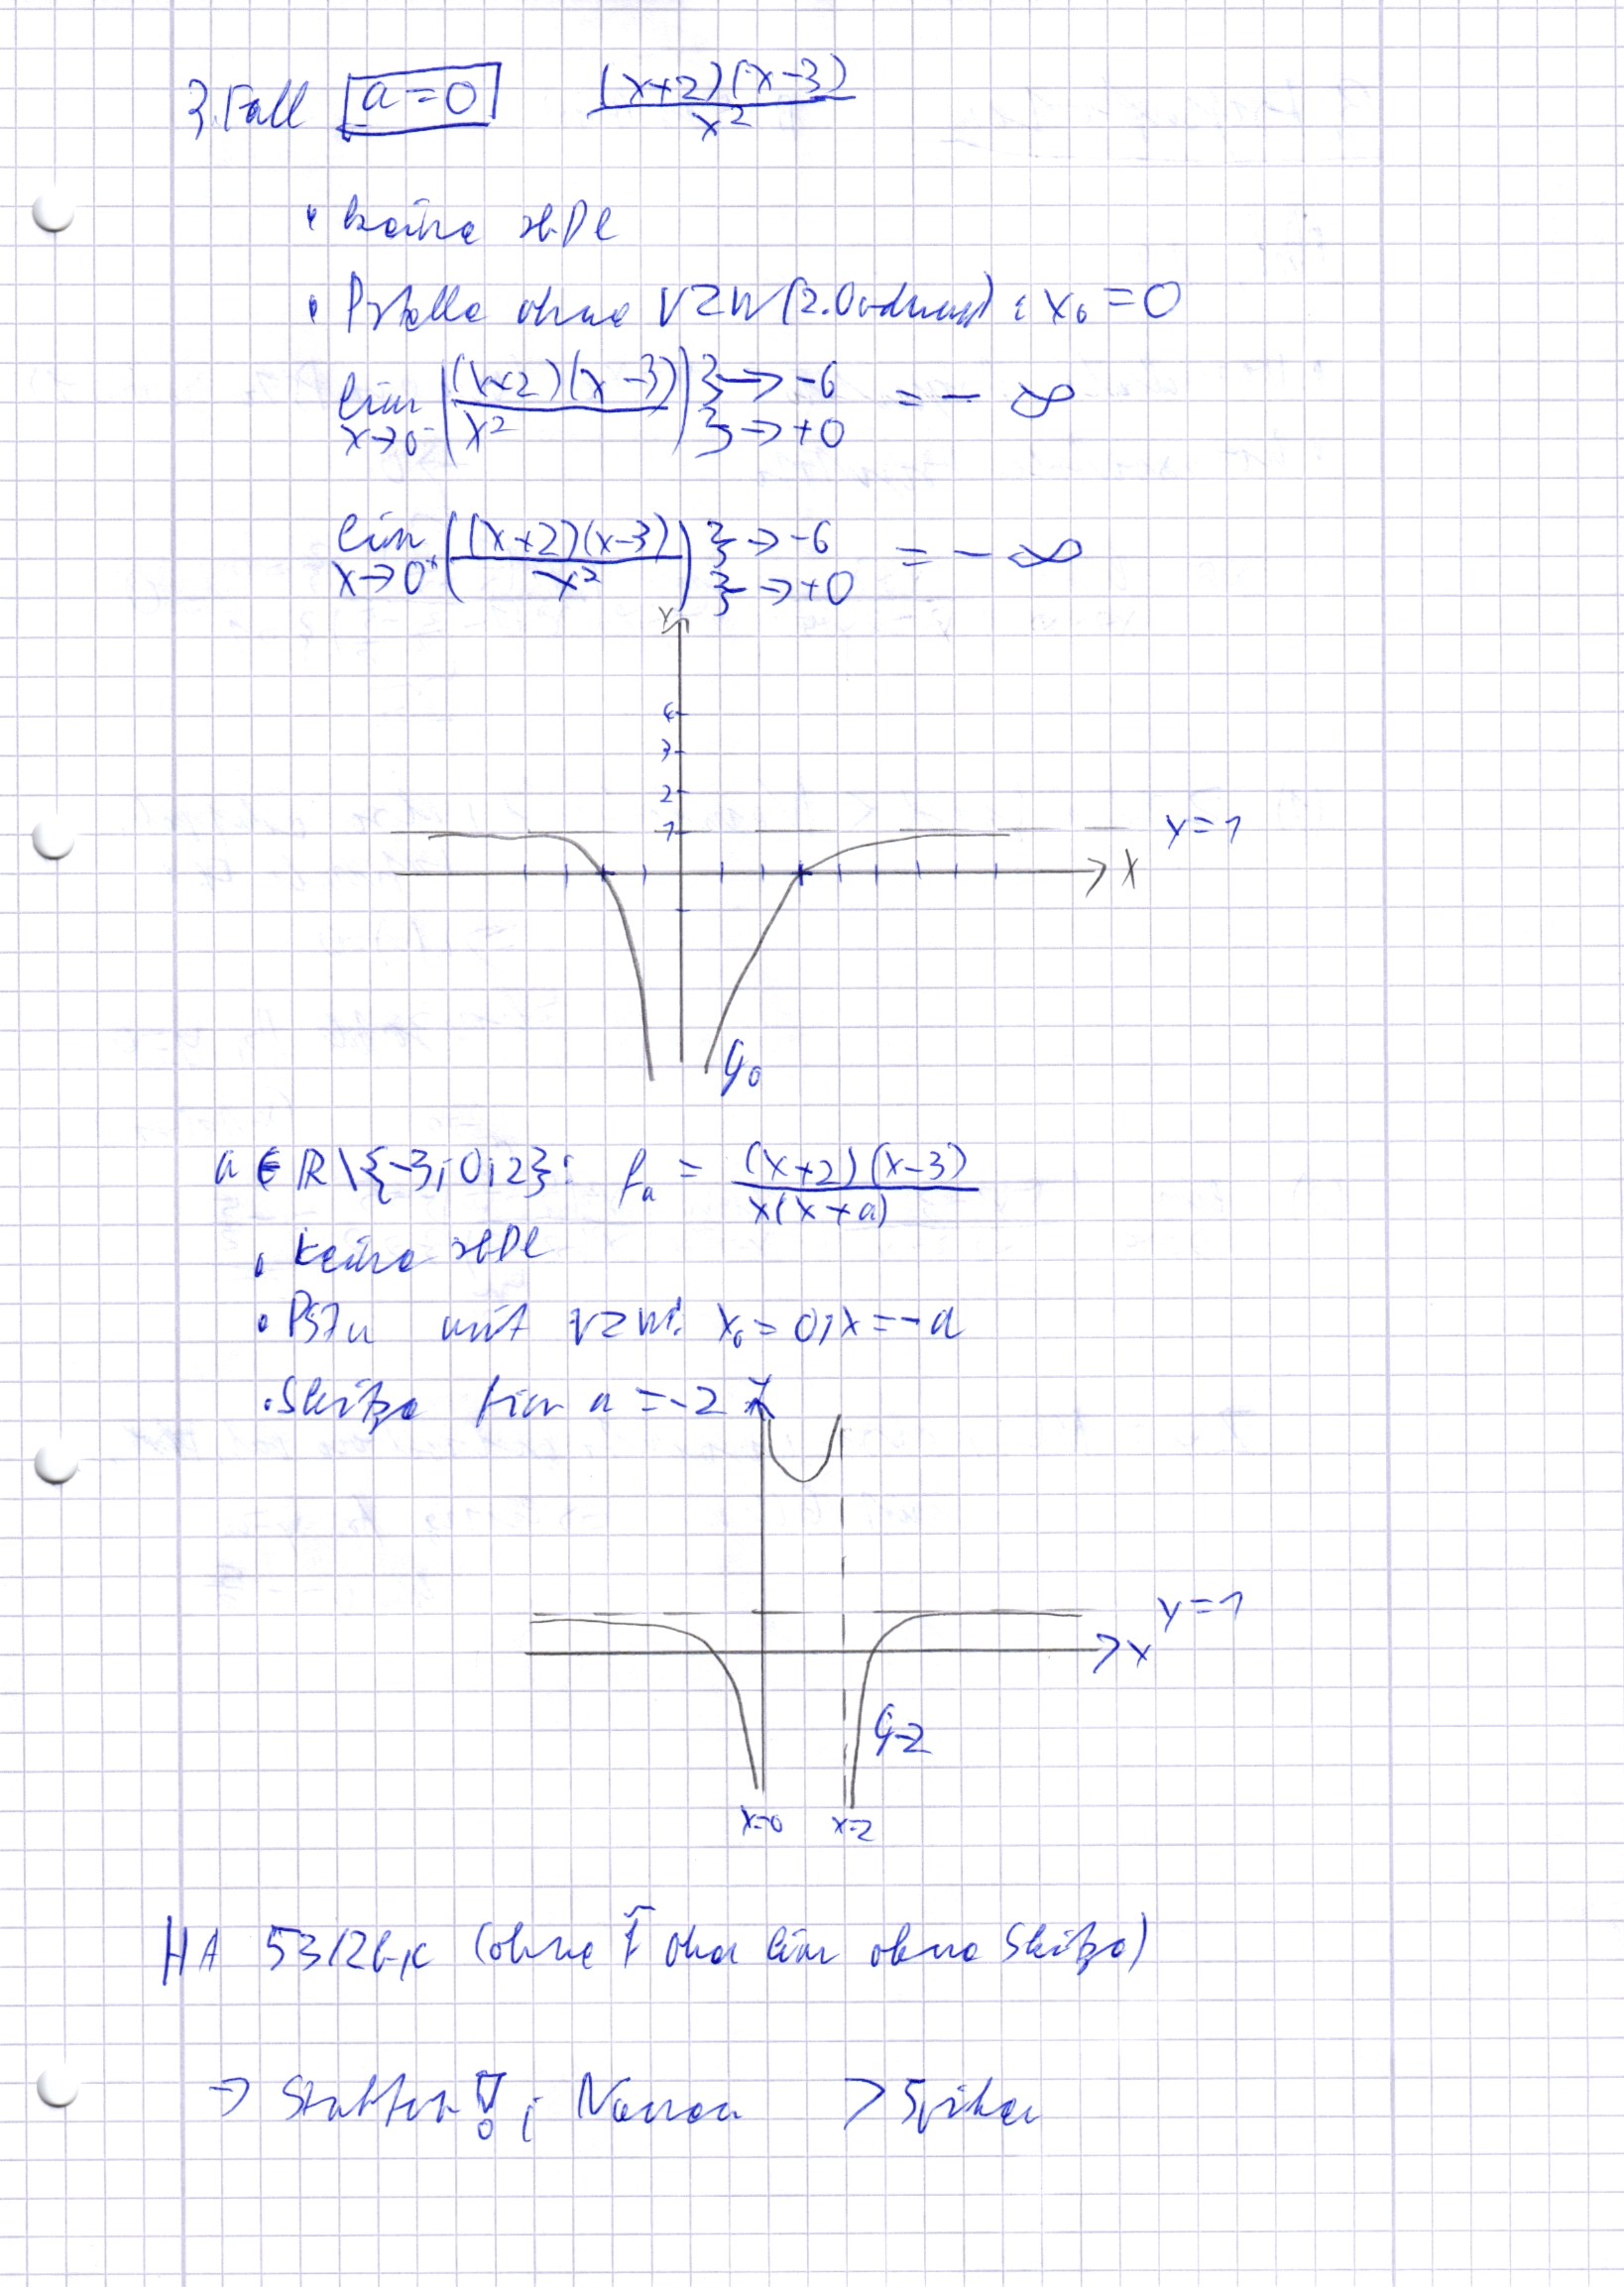 3. Fall a = 0 (x+2)(x-3) / x²
• keine shDl
• Pstelle ohne VZW (2. Ordnung) : x₀ = 0
lim x→0⁻ ((x+2)(x-3) / x²) } → -6 } → +0 = - ∞
lim x→0⁺ ((x+2)(x-3) / x²) } → -6 } → +0 = - ∞
y
4
3
2
1
y = 1
x
G₀
a ∈ ℝ \ {-3; 0; 2} : fₐ = (x+2)(x-3) / x(x+a)
• keine shDl
• PStn mit VZW: x₀ = 0; x = -a
• Skizze für a = -2
y
y = 1
x
G₋₂
x=0 x=2
HA 53/2b,c (ohne oder lim ohne Skizze)
→ ; >